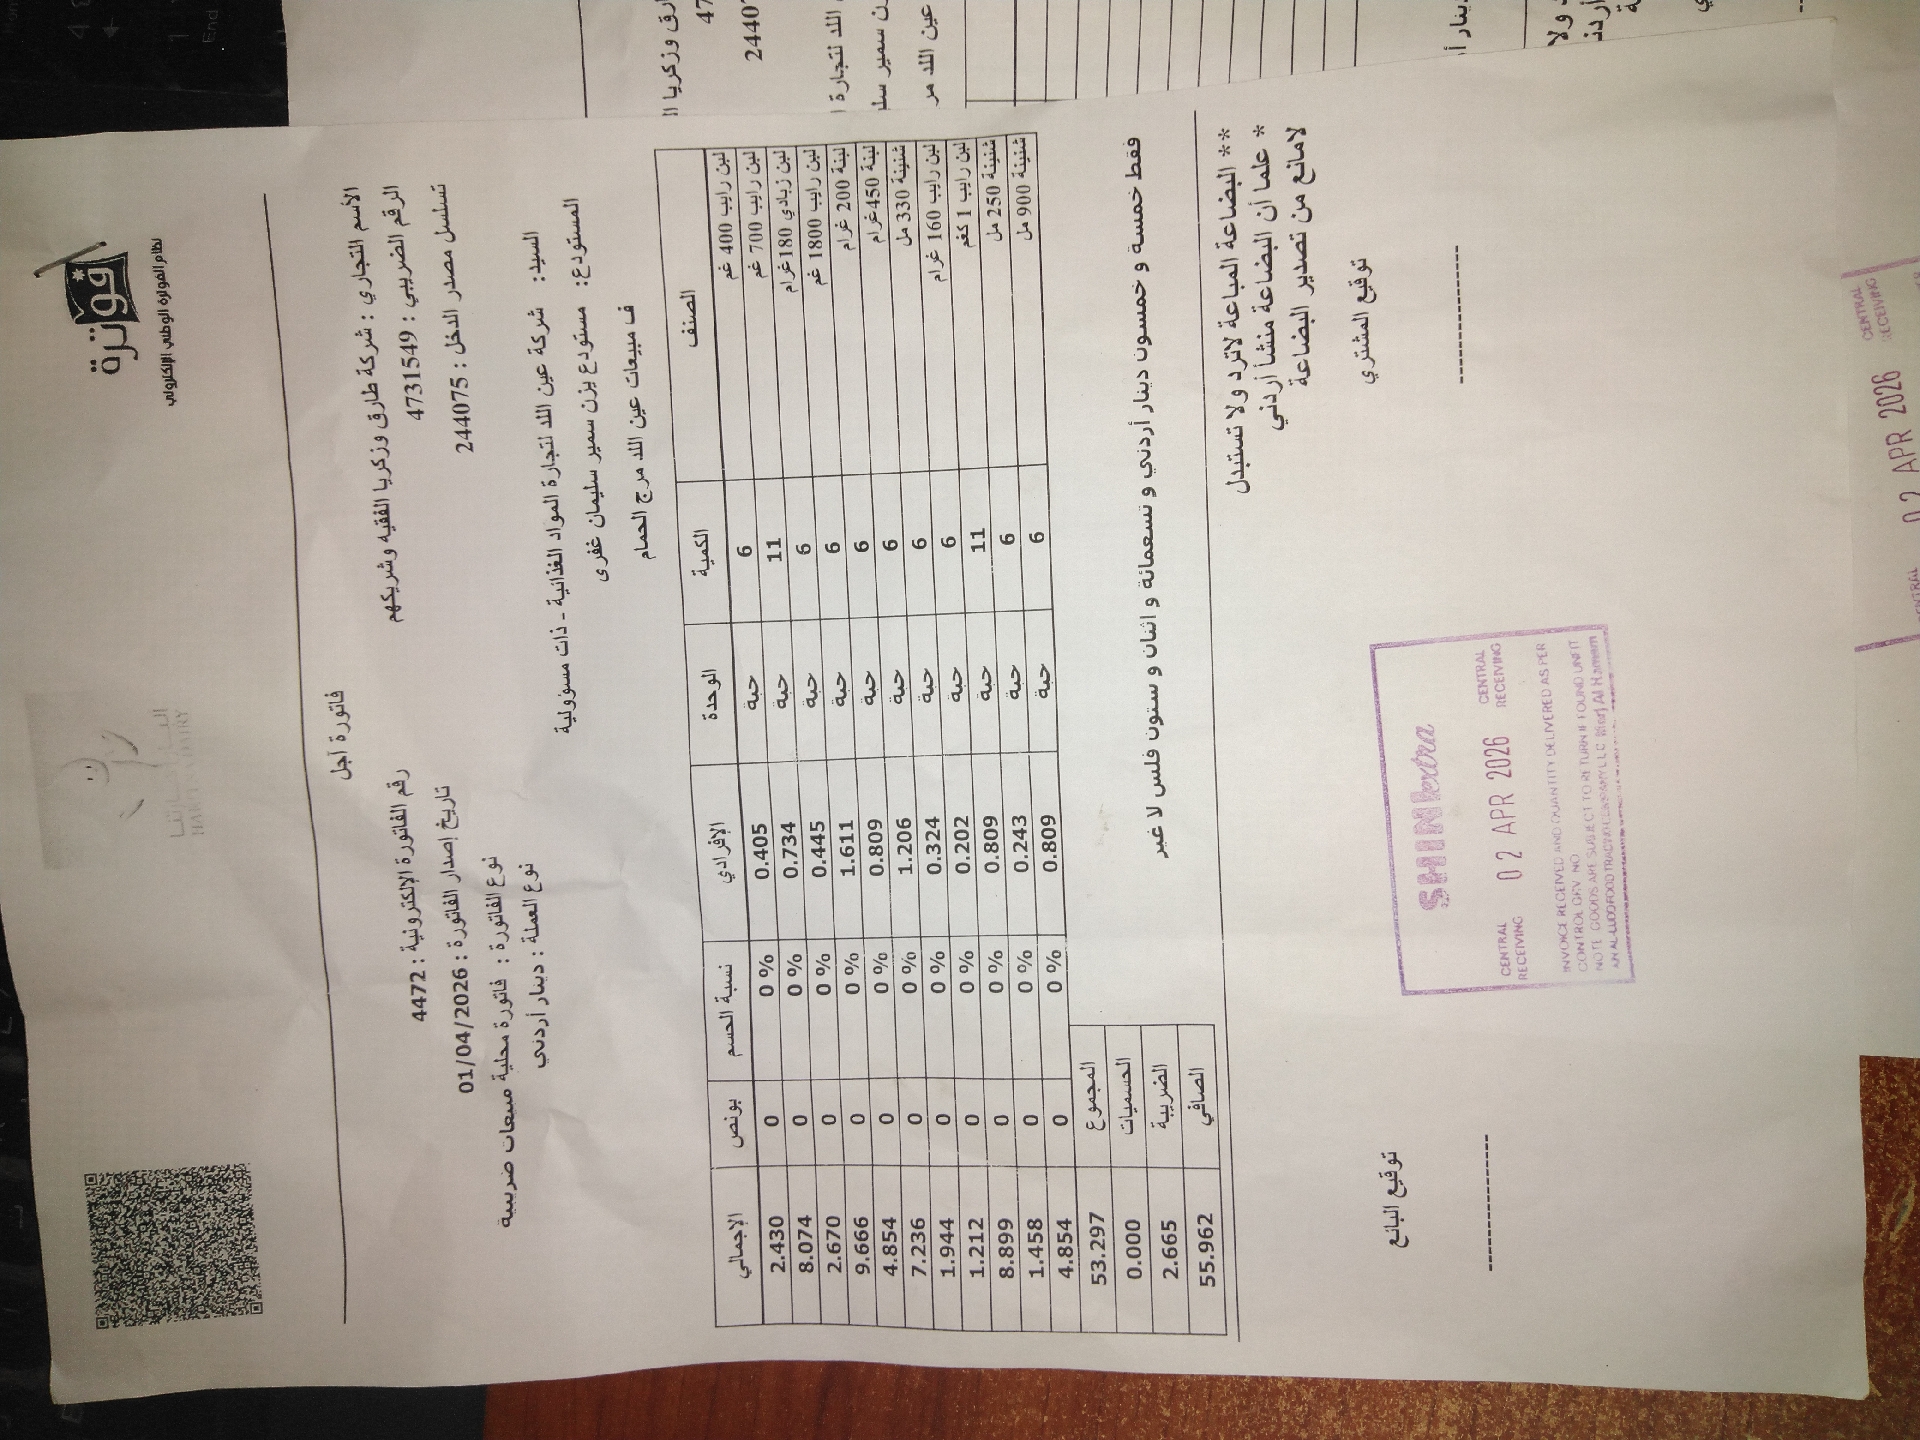 فوترة
نظام الفوترة الوطني الإلكتروني
HARETNA DAIRY
فاتورة آجل
الأسم التجاري : شركة طارق وزكريا الفقيه وشريكهم
الرقم الضريبي : 4731549
تسلسل مصدر الدخل : 244075
رقم الفاتورة الإلكترونية : 4472
تاريخ إصدار الفاتورة : 01/04/2026
نوع الفاتورة : فاتورة محلية مبيعات ضريبية
نوع العملة : دينار أردني
السيد: شركة عين اللد لتجارة المواد الغذائية - ذات مسؤولية
المستودع: مستودع يزن سمير سليمان غفرى
ف مبيعات عين اللد مرج الحمام
الصنف الكمية الوحدة الإفرادي نسبة الحسم بونص الإجمالي
لبن رايب 400 غم 6 حبة 0.405 0 % 0 2.430
لبن رايب 700 غم 11 حبة 0.734 0 % 0 8.074
لبن زبادي 180غرام 6 حبة 0.445 0 % 0 2.670
لبن رايب 1800 غم 6 حبة 1.611 0 % 0 9.666
لبنة 200 غرام 6 حبة 0.809 0 % 0 4.854
لبنة 450غرام 6 حبة 1.206 0 % 0 7.236
شنينة 330 مل 6 حبة 0.324 0 % 0 1.944
لبن رايب 160 غرام 6 حبة 0.202 0 % 0 1.212
لبن رايب 1 كغم 11 حبة 0.809 0 % 0 8.899
شنينة 250 مل 6 حبة 0.243 0 % 0 1.458
شنينة 900 مل 6 حبة 0.809 0 % 0 4.854
المجموع 53.297
الحسميات 0.000
الضريبة 2.665
الصافي 55.962
فقط خمسة و خمسون دينار أردني و تسعمائة و اثنان و ستون فلس لا غير
** البضاعة المباعة لاترد ولا تستبدل
* علما أن البضاعة منشأ أردني
لامانع من تصدير البضاعة
توقيع المشتري
توقيع البائع
SMINIextra
CENTRAL RECEIVING 02 APR 2026 CENTRAL RECEIVING
INVOICE RECEIVED AND QUANTITY DELIVERED AS PER
CONTROL GRV NO
NOTE GOODS ARE SUBJECT TO RETURN IF FOUND UNFIT
Marj Al Hamam
CENTRAL 02 APR 2026 CENTRAL RECEIVING